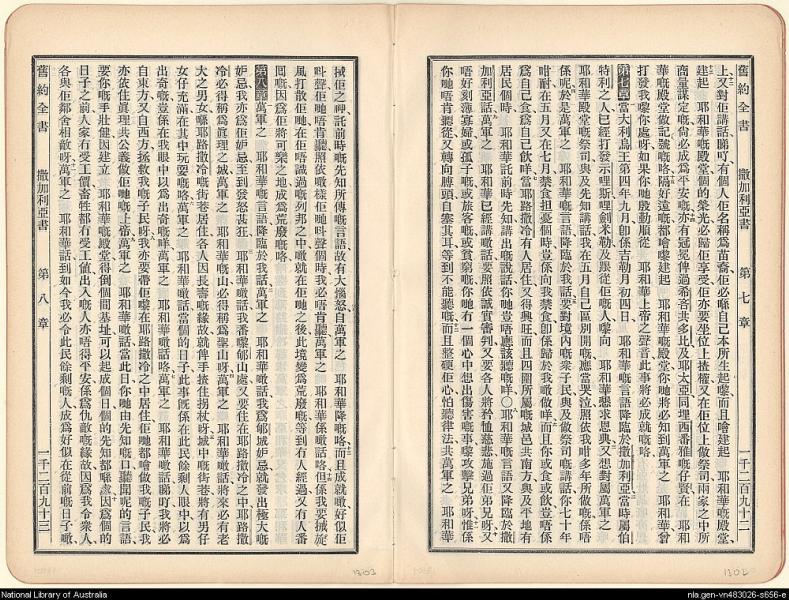 舊約全書　撒加利亞書　第七章　一千二百九十二
上又對佢講話睇吖有個人佢名稱爲苗裔佢必喺自己本所生起嚟而且噲建起　耶和華嘅殿堂
建起　耶和華嘅殿堂個的榮光必歸佢享受佢亦要坐位上揸權又在佢位上做祭司兩家之中所
商量謀定嘅尙必成爲平安嘅亦有冠冕俾過希吝共多比及耶太亞同埋西番雅嘅仔賢在　耶和
華嘅殿堂做記號嘅咯隔好遠嘅都噲嚟建起　耶和華嘅殿堂你哋將必知到萬軍之　耶和華曾
打發我嚟你處呀如果你哋殷勤順從　耶和華上帝之聲音此事將必成就嘅咯
第七章當大利烏王第四年九月卽係吉勒月初四日　耶和華嘅言語降臨於撒加利亞當時屬伯
特利之人已經打發示哩斯哩劍米勒及跟從佢嘅人嚟向　耶和華懇求恩典又想對屬萬軍之
耶和華殿堂嘅祭司與及先知講話我在五月自己區別開嘅應當哭泣照依我咁多年所做嘅係唔
係呢於是萬軍之　耶和華嘅言語降臨於我話要對境內嘅衆子民與及做祭司嘅講話你七十年
咁耐在五月又在七月禁食担憂個時豈係向我禁食卽係歸於我噉做咩而且你或食或飮豈唔係
爲自己食爲自己飮咩當耶路撒冷有人居住又得興旺而且四圍所屬嘅城邑共南方與及平地有
居民個時　耶和華託前時先知講出嘅說話你哋豈唔應該聽嘅咩○耶和華嘅言語又降臨於撒
加利亞話萬軍之　耶和華已經講噉話要照依誠實審判又要各人將矜恤慈悲施過佢弟兄呀又
唔好刻薄寡婦或孤子或旅客嘅或貧窮嘅你哋有一個心中想出傷害嘅事嚟攻擊兄弟呀惟係
你哋唔肯聽從又轉向膊頭自塞其耳等到不能聽嘅而且整硬佢心怕聽律法共萬軍之　耶和華
1302
㨂佢之神託前時嘅先知所傳嘅言語故有大惱怒自萬軍之　耶和華降嘅咯而且成就噉好似佢
呌聲佢哋唔肯聽照依噉樣佢哋呌聲個時我必唔肯聽萬軍之　耶和華係噉話咯但係我要㨂旋
風打散佢哋在佢唔識過嘅列邦之中噉就在佢哋之後此境變爲荒廢嘅等到有人經過又有人番
囘嘅因爲佢將可樂之地成爲荒廢嘅咯
第八章萬軍之　耶和華嘅言語降臨於我話萬軍之　耶和華噉話我爲郇城妬忌就發出極大嘅
妬忌我亦爲佢妬忌至到發怒甚狂　耶和華噉話我番嚟郇山處又要住在耶路撒冷之中耶路撒
冷必得稱爲眞理之城萬軍之　耶和華嘅山必得稱爲聖山呀萬軍之　耶和華噉話將來必有老
大之男女喺耶路撒冷嘅街巷居住各人因長壽嘅緣故就俾手揸住拐杖呀城中嘅街巷將有男仔
女仔充滿在其中玩耍嘅咯萬軍之　耶和華噉話當個的日子此事旣係在此民餘剩人眼中以爲
出奇嘅豈係在我眼中以爲出奇嘅咩萬軍之　耶和華嘅言語咯萬軍之　耶和華噉話睇吖我將必
自東方又自西方拯救我嘅子民呀我亦要帶佢嚟在耶路撒冷之中居住佢哋都噲做我嘅子民我
亦依住眞理共公義做佢哋嘅上帝萬軍之　耶和華噉話當此日你哋由先知嘅口聽聞呢的言語
要你嘅手壯健因建立　耶和華嘅殿堂得倒個間基址可以起成個日個的先知都喺處因個的
日子之前人家有受工價畜牲都冇受工値出入嘅人亦唔得平安係爲仇敵嘅緣故因爲我令衆人
各與佢鄰舍相敵呀萬軍之　耶和華話到如今我必令此民餘剩嘅人成爲好似在從前嘅日子噉
舊約全書　撒加利亞書　第八章　一千二百九十三
1303
National Library of Australia
nla.gen-vn483026-s656-e